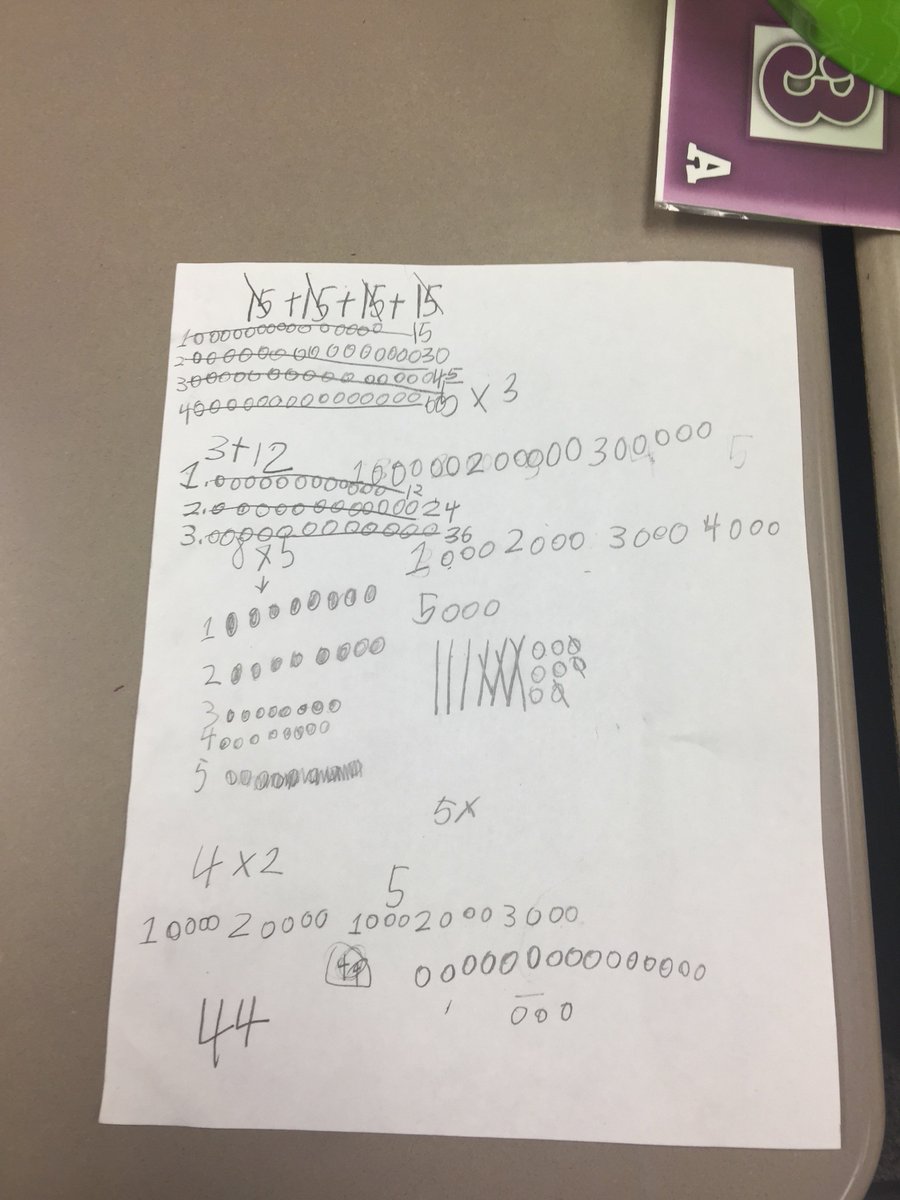 3
A
15 + 15 + 15 + 15
1 000000000000000 15
2 000000000000000 30
3 000000000000000 45
4 000000000000000 60 x 3
3+12
1. 000000000000 12
100000 200000 300000 5
2. 000000000000 24
3. 000000000000 36
8 x 5
1000 2000 3000 4000
1 00000000
5000
2 00000000
3 00000000
4 00000000
5
5x
4 x 2
5
10000 20000 1000 2000 3000
44
000000000000000
000